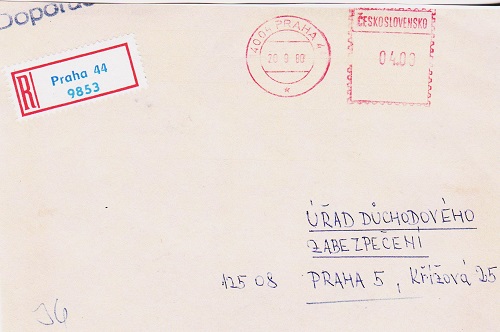 Doporuč
Praha 44
R
9853
4004 PRAHA 4
20.9.80
ČESKOSLOVENSKO
04.00
ÚŘAD DŮCHODOVÉHO
ZABEZPEČENÍ
12508 PRAHA 5, Křížová 25